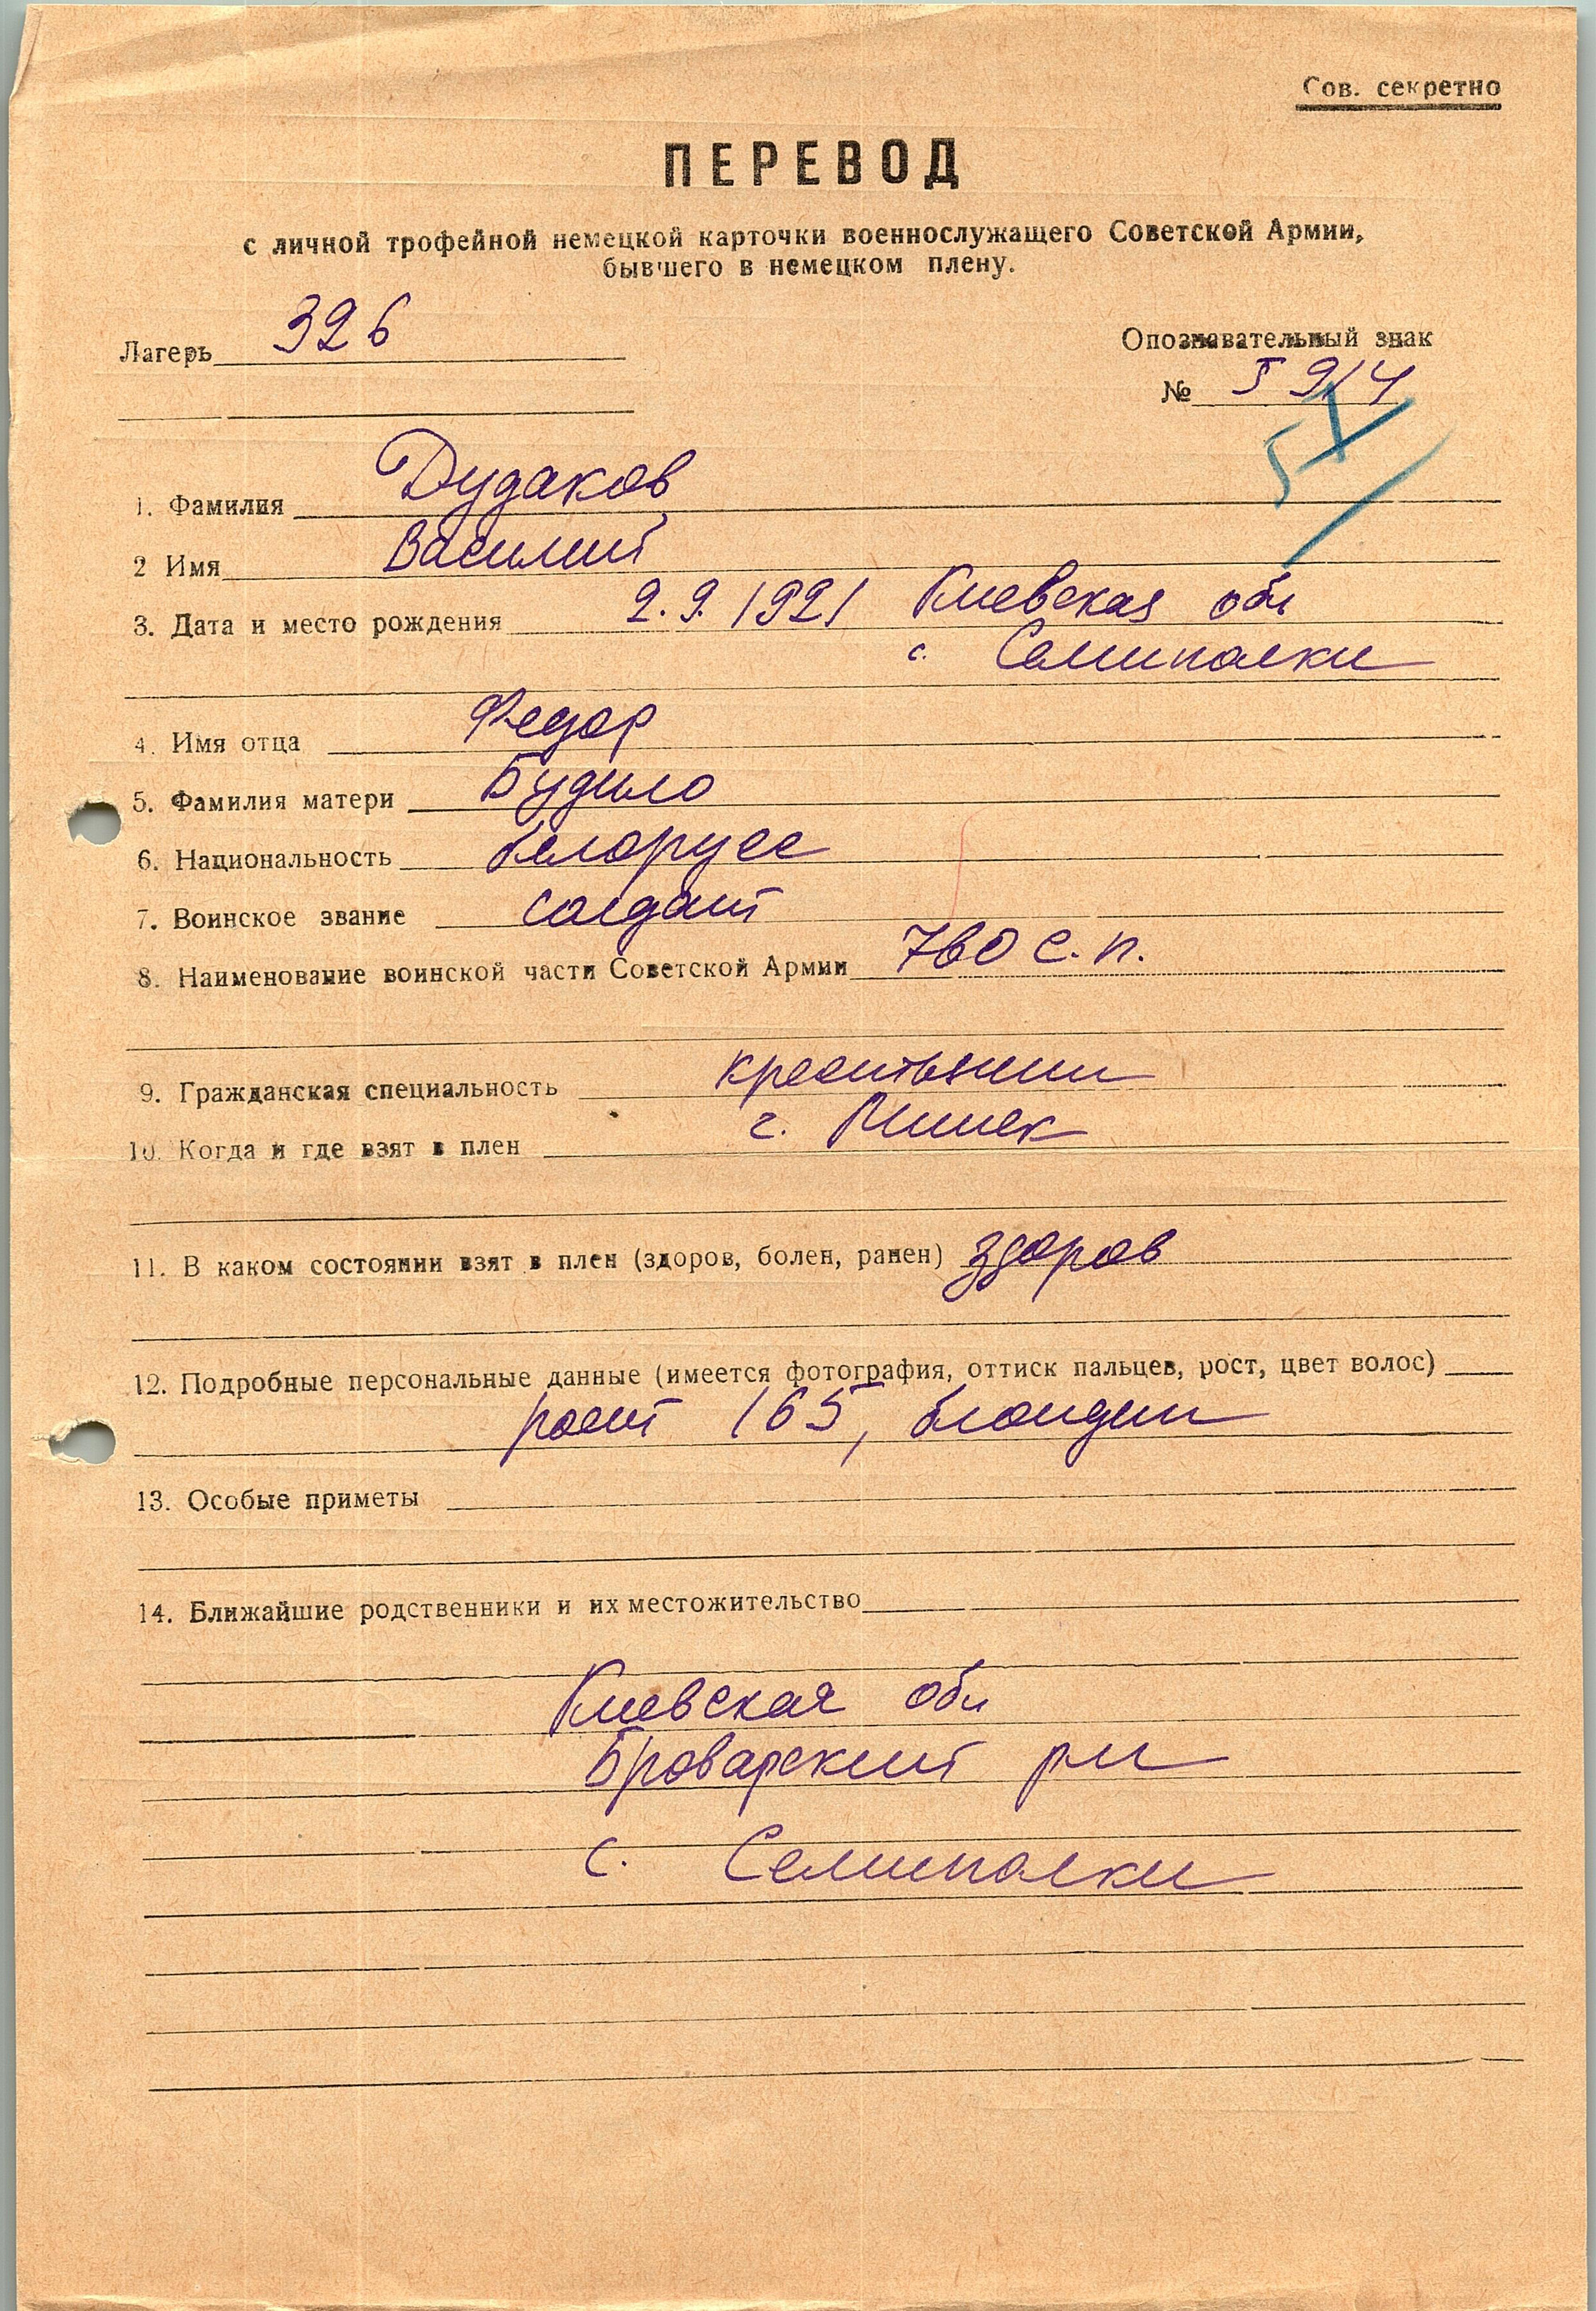 Сов. секретно
ПЕРЕВОД
с личной трофейной немецкой карточки военнослужащего Советской Армии,
бывшего в немецком плену.
Лагерь 326
Опознавательный знак
№ 5914
5
1. Фамилия Дудаков
2 Имя Василий
3. Дата и место рождения 2.9.1921 Киевская обл
с. Семиполки
4. Имя отца Федор
5. Фамилия матери Будило
6. Национальность белорусс
7. Воинское звание солдат
8. Наименование воинской части Советской Армии 760 с.п.
9. Гражданская специальность крестьянин
10. Когда и где взят в плен г. Минск
11. В каком состоянии взят в плен (здоров, болен, ранен) здоров
12. Подробные персональные данные (имеется фотография, оттиск пальцев, рост, цвет волос)
рост 165, блондин
13. Особые приметы
14. Ближайшие родственники и их местожительство
Киевская обл
Броварский рн
с. Семиполки